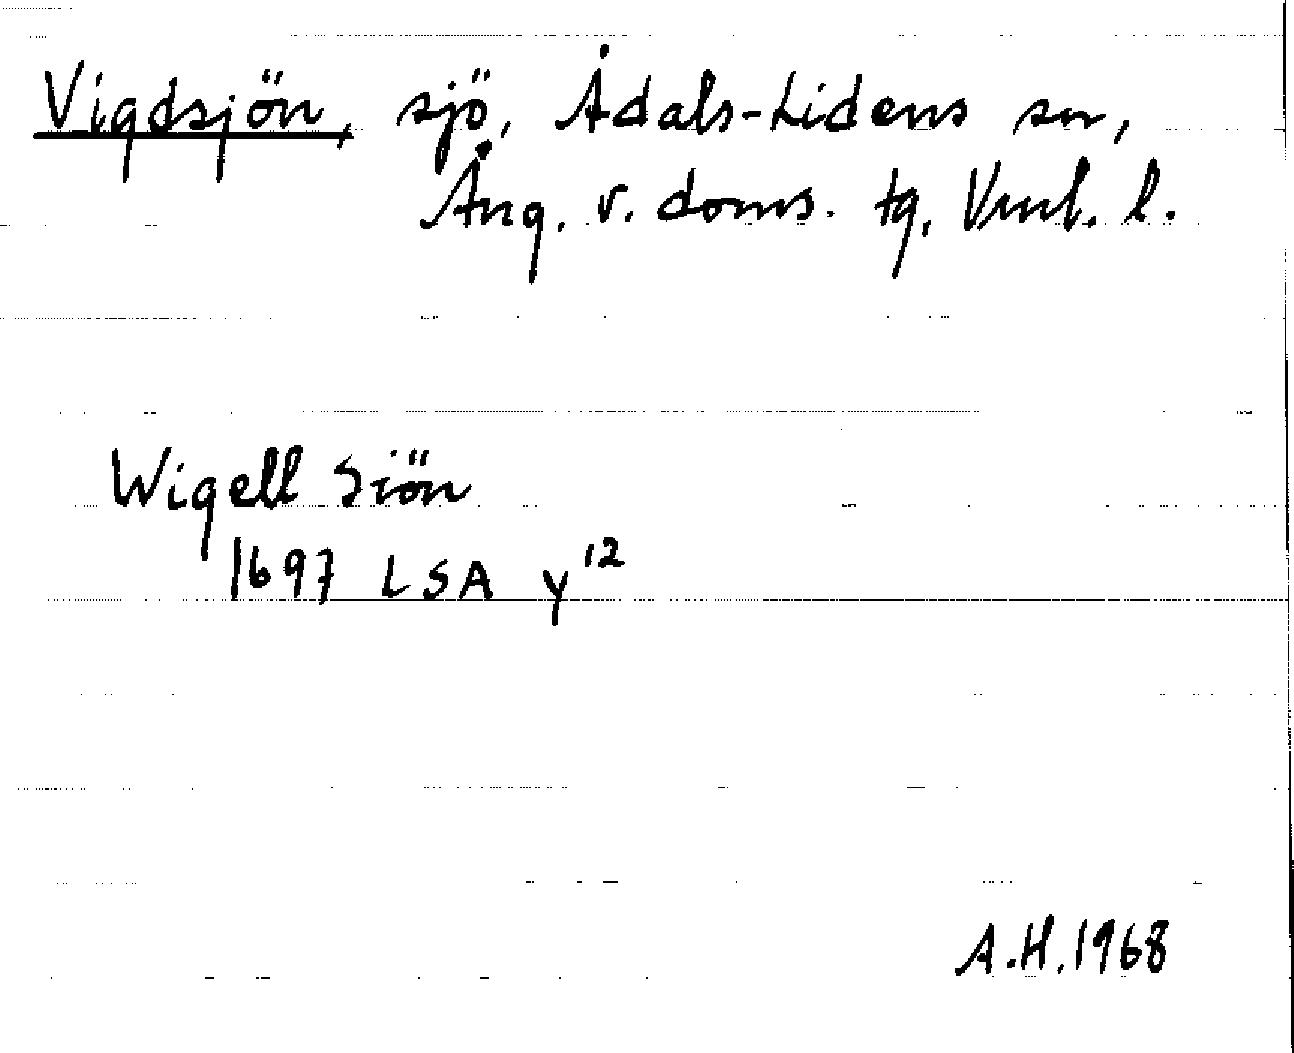 Vigdsjön, sjö, Ådals-Lidens sn,
Ång. v. doms. tg, Vnrl. l.
Wigell Siön
1697 LSA y¹²
A.H.1968